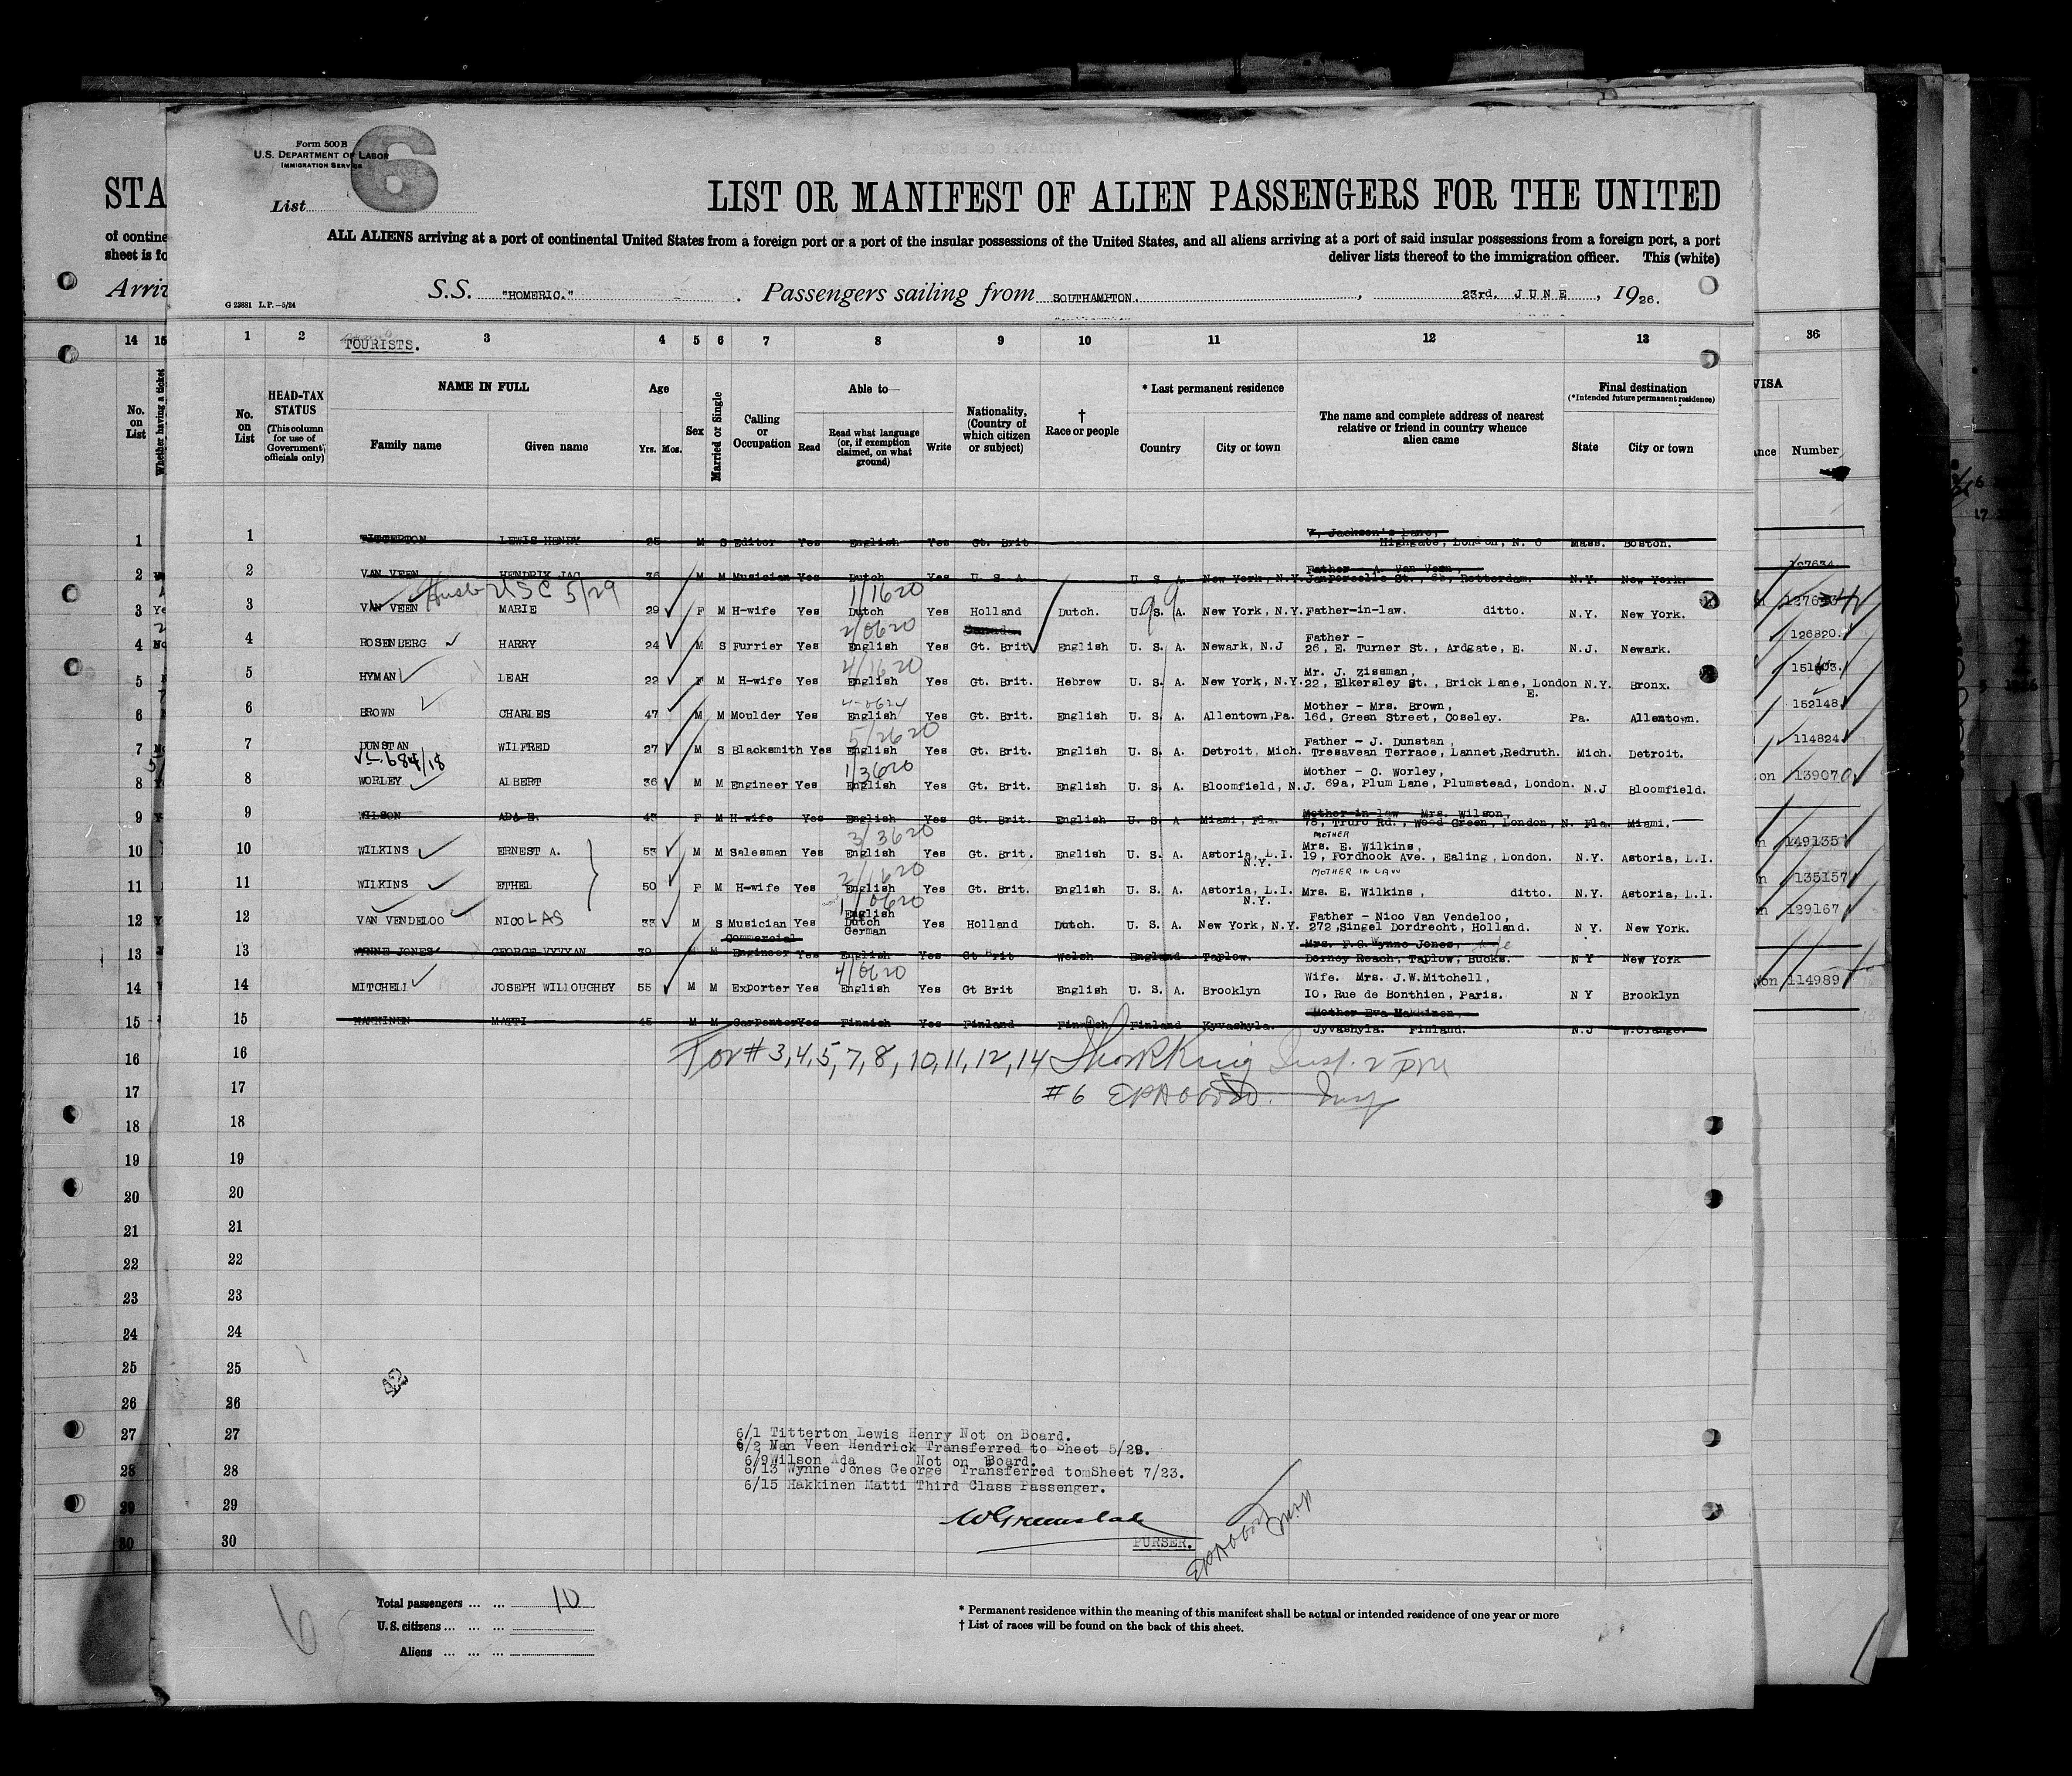 Form 500 B
U.S. DEPARTMENT OF LABOR
IMMIGRATION SERVICE
6
List
STA
LIST OR MANIFEST OF ALIEN PASSENGERS FOR THE UNITED
of contine
ALL ALIENS arriving at a port of continental United States from a foreign port or a port of the insular possessions of the United States, and all aliens arriving at a port of said insular possessions from a foreign port, a port
sheet is fo
deliver lists thereof to the immigration officer. This (white)
Arriv
S.S. "HOMERIC." Passengers sailing from SOUTHAMPTON. , 23rd. JUNE , 1926.
G 23881 L.P.—5/24
14 15 1 2 TOURISTS. 3 4 5 6 7 8 9 10 11 12 13 36
No. on List
Whether having a ticket
No. on List
HEAD-TAX STATUS
(This column for use of Government officials only)
NAME IN FULL
Family name Given name
Age
Yrs. Mos.
Sex
Married or Single
Calling or Occupation
Able to—
Read
Read what language (or, if exemption claimed, on what ground)
Write
Nationality, (Country of which citizen or subject)
† Race or people
* Last permanent residence
Country City or town
The name and complete address of nearest relative or friend in country whence alien came
Final destination
(*Intended future permanent residence)
State City or town
VISA
ance Number
7, Jackson's Lane,
1 1 TITTERTON LEWIS HENRY 25 M S Editor Yes English Yes Gt. Brit Highgate, London, N. 6 Mass. Boston.
Father - A. Van Veen,
2 2 VAN VEEN HENDRIK JAC 36 M M Musician Yes Dutch Yes U S A U S A. New York, N.Y. Rotterdam. N.Y. New York. 127634
USC 5/29 1/1620
3 3 VAN VEEN MARIE 29 F M H-wife Yes Dutch Yes Holland Dutch. U.S. A. New York, N.Y. Father-in-law. ditto. N.Y. New York.
2/0620 Canada Father -
4 4 ROSENBERG HARRY 24 M S Furrier Yes English Yes Gt. Brit English U. S. A. Newark, N.J 26, E. Turner St., Ardgate, E. N.J. Newark. 126820.
4/1620 Mr. J. Zissman,
5 5 HYMAN LEAH 22 F M H-wife Yes English Yes Gt. Brit. Hebrew U. S. A. New York, N.Y. 22, Elkersley St., Brick Lane, London E. N.Y. Bronx.
Mother - Mrs. Brown,
6 6 BROWN CHARLES 47 M M Moulder Yes English Yes Gt. Brit. English U. S. A. Allentown,Pa. 16d, Green Street, Coseley. Pa. Allentown. 152148
5/2620 Father - J. Dunstan,
7 7 DUNSTAN WILFRED 27 M S Blacksmith Yes English Yes Gt. Brit. English U. S. A. Detroit, Mich. Tresavean Terrace, Lannet,Redruth. Mich. Detroit. 114824
1/3620 Mother - C. Worley,
8 8 WORLEY ALBERT 36 M M Engineer Yes English Yes Gt. Brit. English U. S. A. Bloomfield, N.J. 69a, Plum Lane, Plumstead, London. N.J Bloomfield. on 13907
Mother-in-law Mrs. Wilson,
9 9 WILSON ADA E. 43 F M H-wife Yes English Yes Gt. Brit. English U. S. A Miami, Fla. 78, Truro Rd., Wood Green, London, N. Fla. Miami.
3/3620 MOTHER Mrs. E. Wilkins,
10 10 WILKINS ERNEST A. 53 M M Salesman Yes English Yes Gt. Brit. English U. S. A. Astoria, L.I. N.Y. 19, Fordhook Ave., Ealing, London. N.Y. Astoria, L.I. 149135
2/1620 MOTHER IN LAW
11 11 WILKINS ETHEL 50 F M H-wife Yes English Yes Gt. Brit. English U. S. A. Astoria, L.I. N.Y. Mrs. E. Wilkins, ditto. N.Y. Astoria, L.I. 135157
1/0620 Father - Nico Van Vendeloo,
12 12 VAN VENDELOO NICOLAS 33 M S Musician Yes English Dutch German Yes Holland Dutch. U. S. A. New York, N.Y. 272,Singel Dordrecht, Holland. N Y. New York. 129167
Commercial Mrs. F.G.Wynne Jones, wife
13 13 WYNNE JONES GEORGE VYVYAN 39 M M Engineer Yes English Yes Gt Brit Welsh England Taplow. Dorney Reach, Taplow, Bucks. N Y New York
4/0620 Wife. Mrs. J.W.Mitchell,
14 14 MITCHELL JOSEPH WILLOUGHBY 55 M M Exporter Yes English Yes Gt Brit English U. S. A. Brooklyn 10, Rue de Bonthien, Paris. N Y Brooklyn 114989
Mother Eva Makkinen,
15 15 MAKKINEN MATTI 45 M M Carpenter Yes Finnish Yes Finland Finnish Finland Kyvashyla. Jyvashyla. Finland. N.J W.Orange.
16 16
For # 3,4,5,7,8,10,11,12,14
17 17
#6
18 18
19 19
20 20
21 21
22 22
23 23
24 24
25 25
26 26
27 27
6/1 Titterton Lewis Henry Not on Board.
6/2 Man Veen Hendrick Transferred to Sheet 5/29.
6/9Wilson Ada Not on Board.
28 28
6/13 Wynne Jones George Transferred tomSheet 7/23.
6/15 Hakkinen Matti Third Class Passenger.
29 29
30 30
PURSER.
6
Total passengers ... ... 10
U.S. citizens ... ... ...
Aliens ... ... ...
* Permanent residence within the meaning of this manifest shall be actual or intended residence of one year or more
† List of races will be found on the back of this sheet.